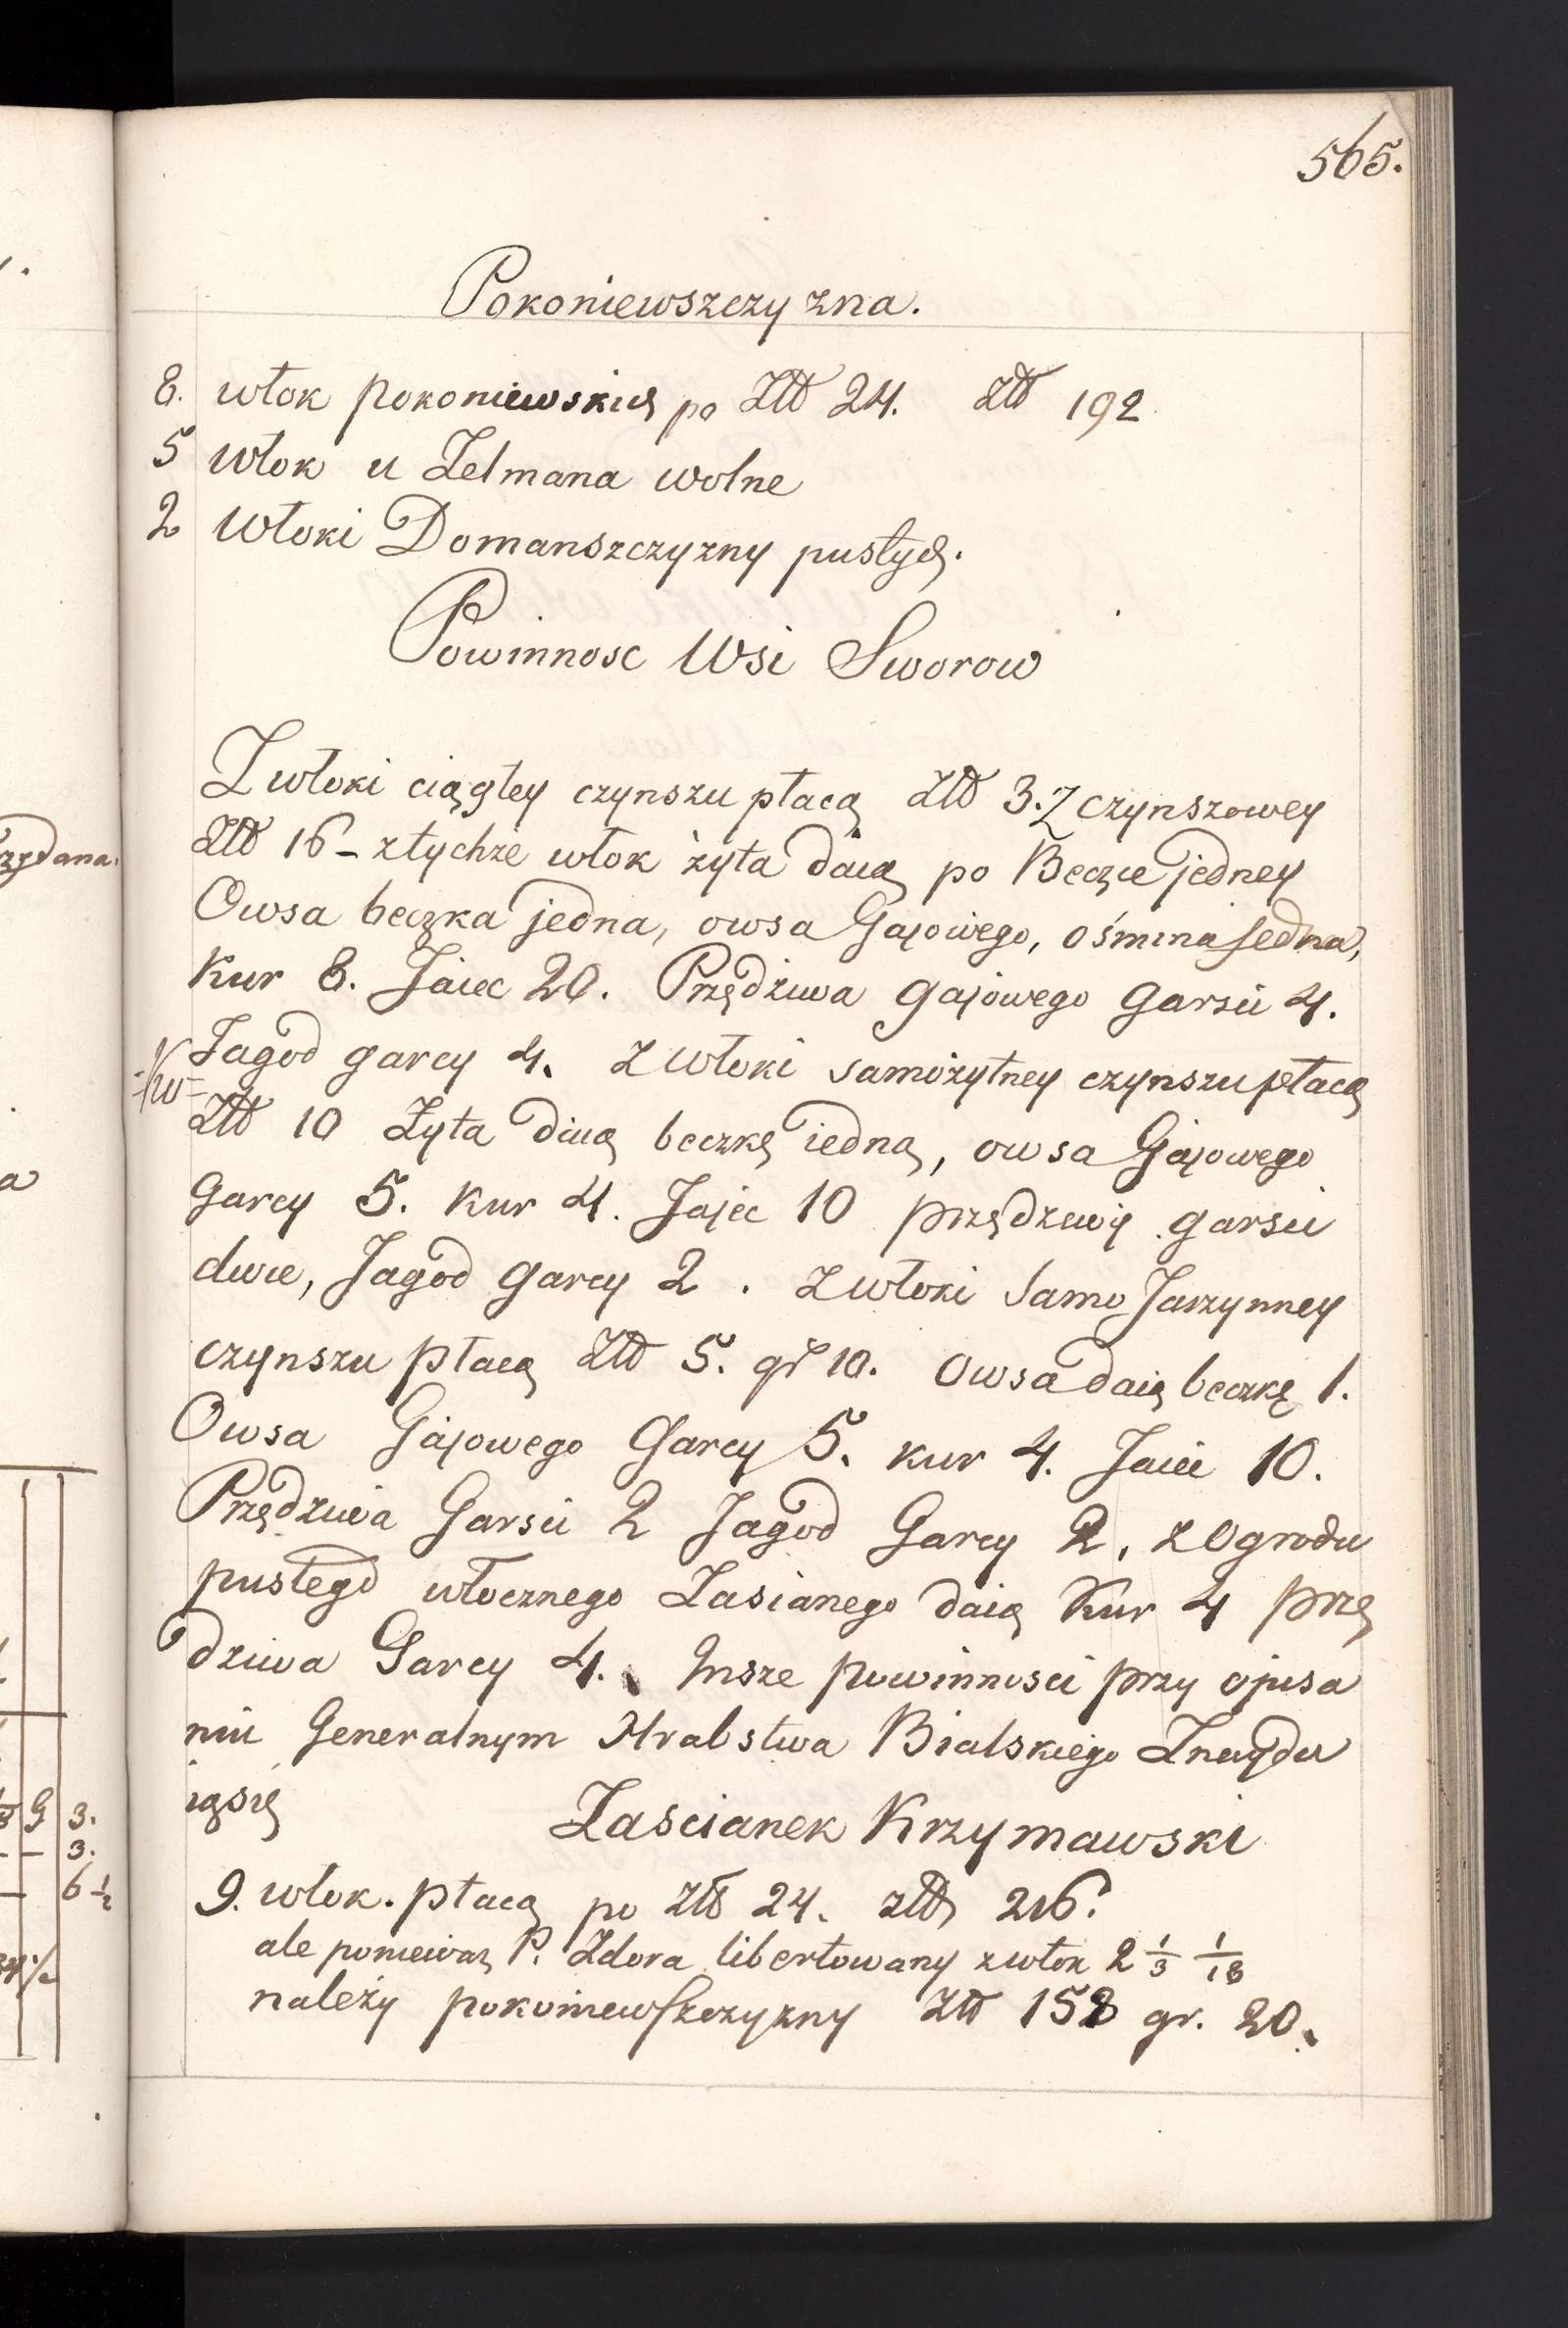 565.
Pokoniewszczyzna.
8. włok pokoniewskich po Złł 24. Złł 192
5 włok u Zelmana wolne
2 włoki Domanszczyzny pustych.
Powinnosc Wsi Sworow
Z włoki ciągłey czynszu płacą Złł 3. Z czynszowey
Złł 16 – z tychże włok żyta daią po Beczce jedney
Owsa beczka jedna, owsa Gajowego, ośmina jedna,
Kur 8. Jaiec 20. Przędziwa gajowego Garsci 4.
Jagod garcy 4. Z włoki samożytney czynszu płacą
Złł 10 Żyta daią beczkę iedną, owsa Gajowego
Garcy 5. Kur 4. Jajec 10 przędziwy garsci
dwie, Jagod garcy 2. Z włoki Samo Jarzynney
czynszu płacą Złł 5. gr 10. Owsa daią beczkę 1.
Owsa Gajowego Garcy 5. kur 4. Jaiec 10.
Przędziwa Garsci 2 Jagod Garcy 2. z Ogrodu
pustego włocznego Zasianego daią Kur 4 przę
dziwa Garcy 4. Insze powinnosci przy opisa
niu Generalnym Hrabstwa Bialskiego Znaydu
ią się
Zascianek Krzymawski
9. włok. płacą po złł 24. złł 216.
ale poniewaz P. Zdora libertowany z włok 2 1/3 1/18
należy pokoniewszczyzny Złł 158 gr. 20.